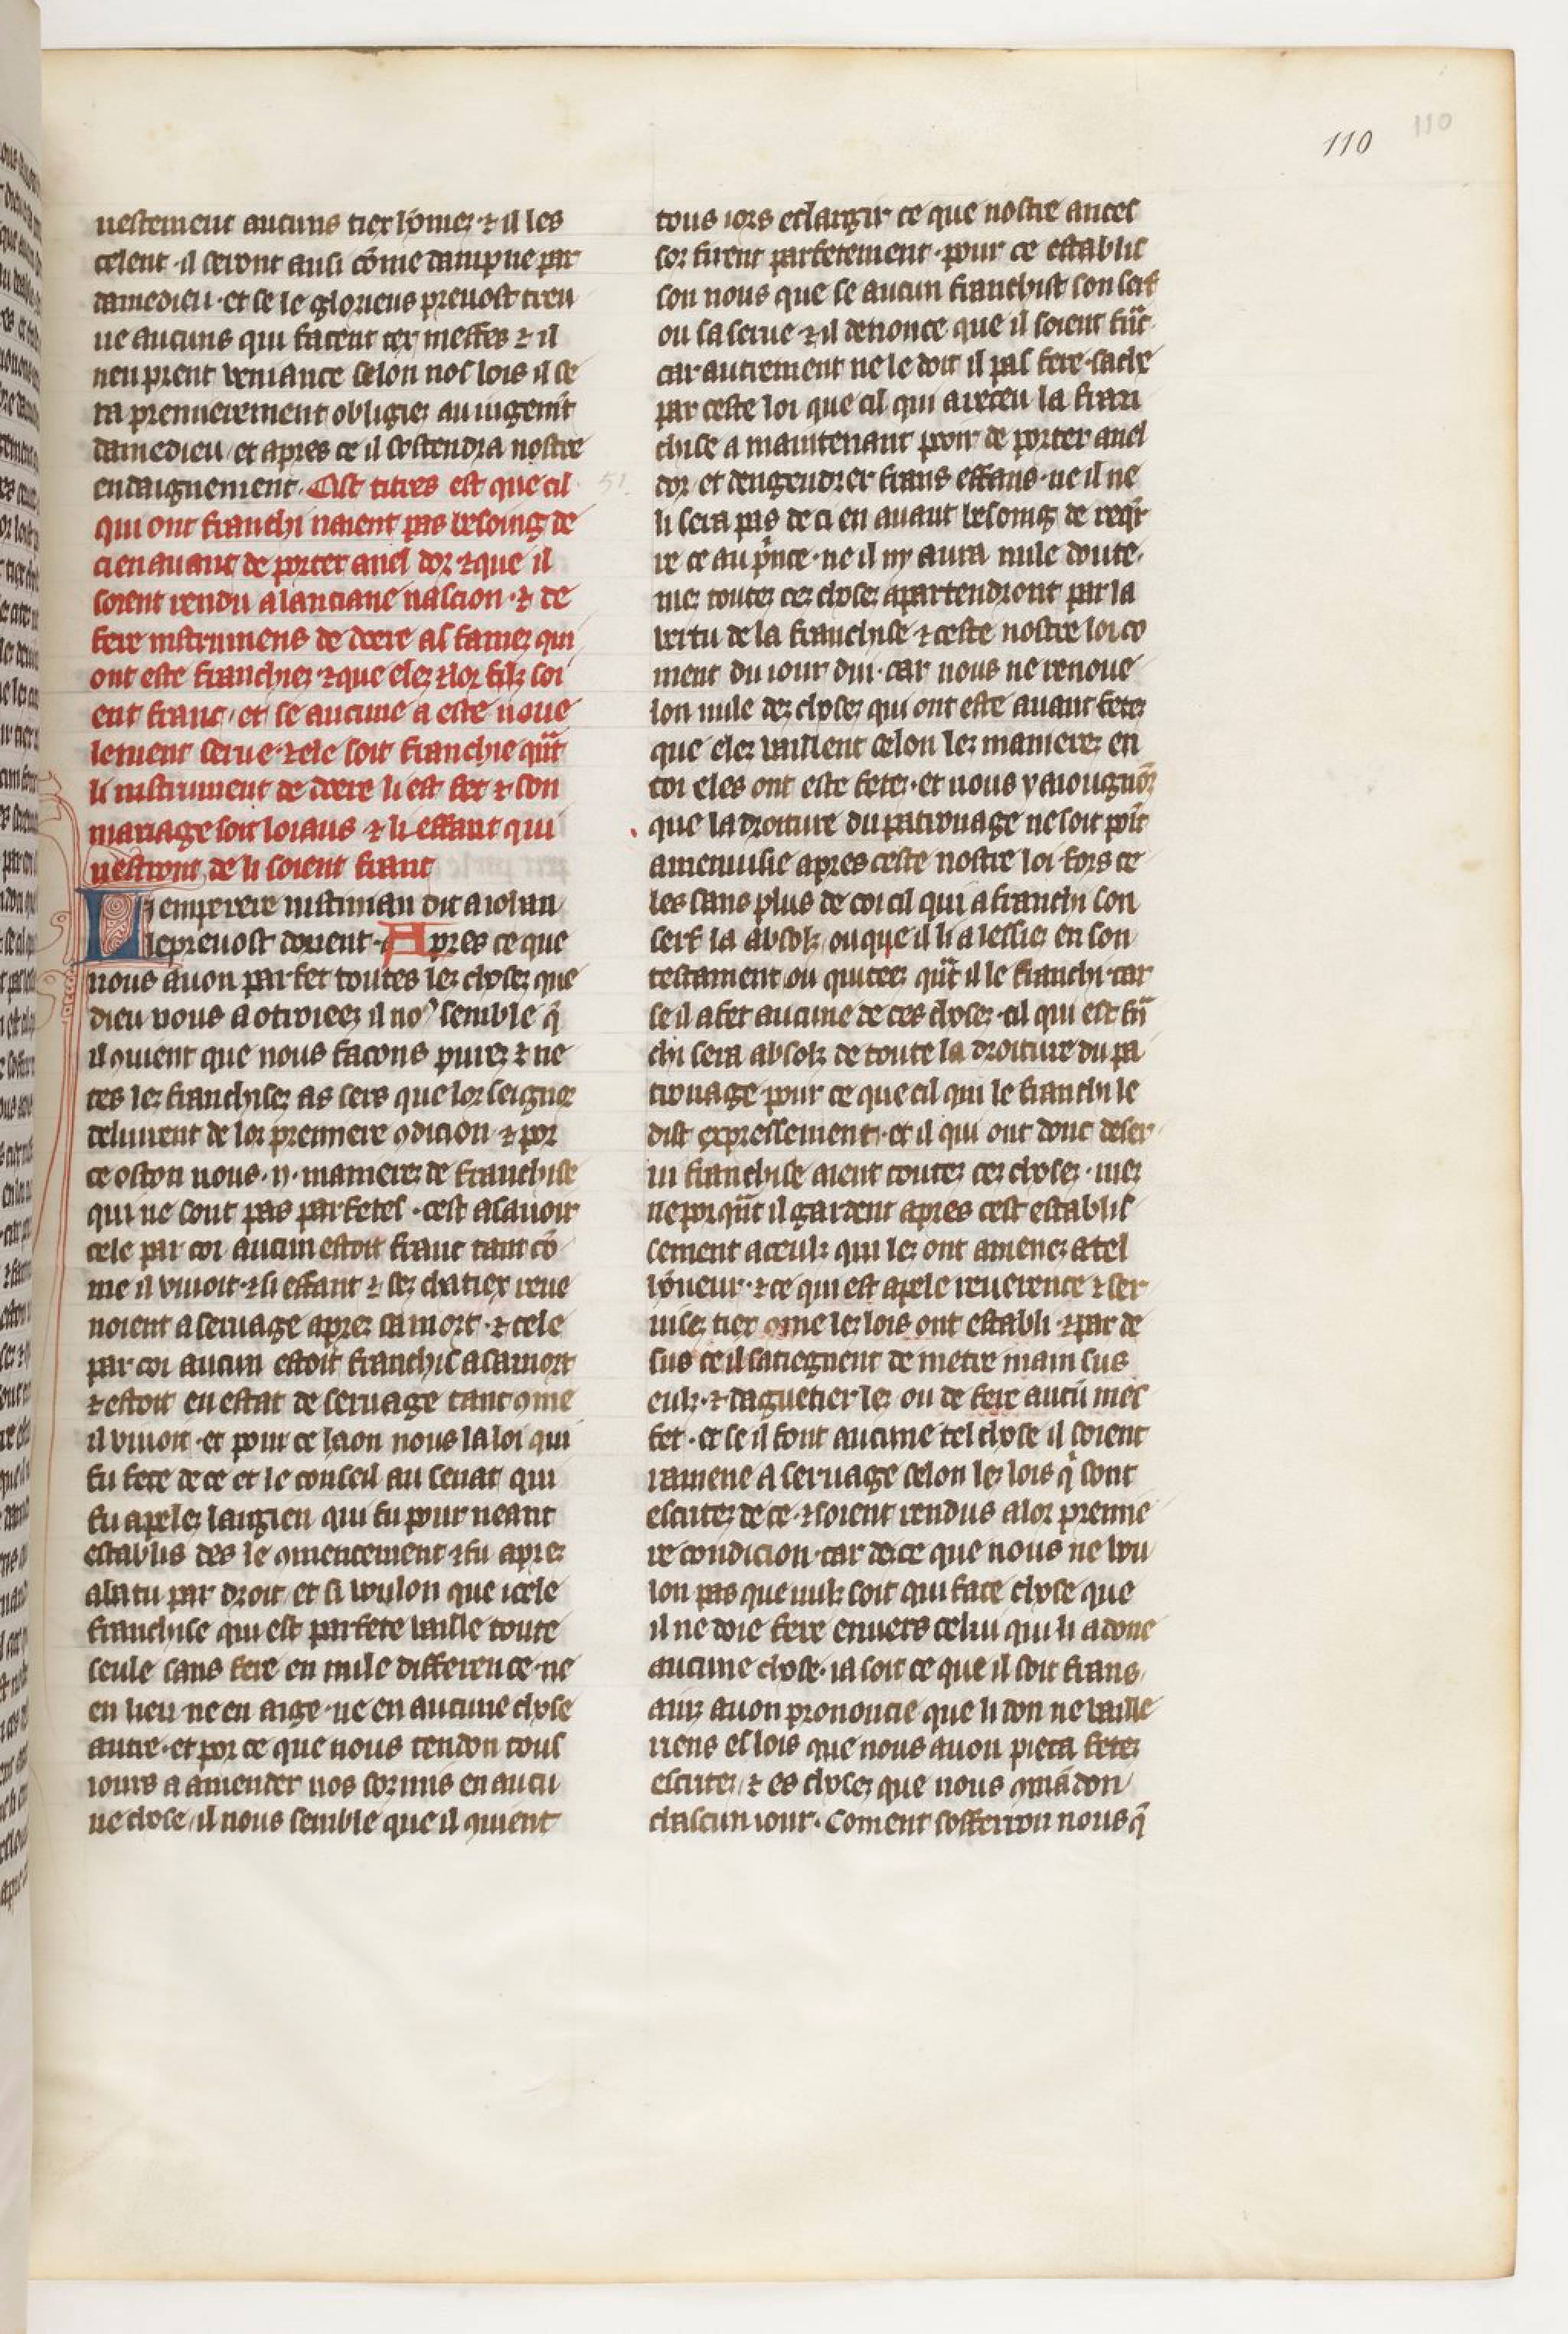 110
110
uestement aucuns tiex hōmez ⁊ il les
celent · il seront ausi cōme dampne par
damedieu · et se le glorieus preuost treu
ue aucuns qui facent tex meffes ⁊ il
nen prent veniance selon nos lois il se
ra premierement obligiez au iugem̄t
damedieu et apres ce il sostendra nostre
endaignement · Cist titres est que cil
qui ont franchi naient pas besoing de
ci en auant de porter anel dor ⁊ que il
soient rendu a lanciane nascion · ⁊ de
fere instrumens de doere as famez qui
ont este franchiez ⁊ que elez ⁊ lor filz soi
ent franc · et se aucune a este noue
lement serue · ⁊ ele soit franchie q̄nt
li instrument de doere li est fet ⁊ son
mariage soit loiaus ⁊ li effant qui
nestront de li soient franc
51
Li emperere iustinian dit a iohan
le preuost dorient · Apres ce que
nous auon parfet toutes lez chosez que
dieu nous a otroieez il noꝰ semble q̄
il ꝯuient que nous facons purez ⁊ ne
tes lez franchisez as sers que lor seignor
deliurent de lor premiere ꝯdicion ⁊ por
ce oston nous · ij · manierez de franchise
qui ne sont pas parfetes · cest asauoir
cele par coi aucun estoit franc tant cō
me il viuoit · ⁊ li effant ⁊ sez chatiex reue
noient a seruage aprez sa mort · ⁊ cele
par coi aucun estoit franchis a sa mort
⁊ estoit en estat de seruage tant ꝯme
il viuoit · et pour ce laon nous la loi qui
fu fete de ce et le conseil au senat qui
fu apelez largien qui fu pour neant
establis des le ꝯmencement ⁊ fu aprez
abatu par droit et si voulon que icele
franchise qui est parfete vaille toute
seule sans fere en nule difference · ne
en lieu · ne en aige · ne en aucune chose
autre · et por ce que nous tendon tous
iours a amender nos sozmis en aucu
ne chose il nous semble que il ꝯuient
tous iors eslargir ce que nostre ances
sor firent parfetement · pour ce establis
son nous que se aucun franchist son serf
ou sa serue ⁊ il denonce que il soient frāc
car autrement ne le doit il pas fere · sache
par ceste loi que cil qui a receu la fran
chise a maintenant pooir de porter anel
dor et dengendrer frans effans · ne il ne
li sera pas de ci en auant besoing de reqͥr
re ce au pͥnce · ne il ny aura nule doute ·
mez toutez cez chosez apartendront par la
vertu de la franchise ⁊ ceste nostre loi co
ment du iour dui · car nous ne renoue
lon nule dez chosez qui ont este auant fetez
que elez vaillent selon lez manierez en
coi eles ont este fetez · et nous y aiougnōz
que la droiture du patronage ne soit point
amenuisie apres ceste nostre loi · fors ce
les sans plus de coi cil qui a franchi son
serf la absolz ou que il li a lessiez en son
testament ou quiteez q̄nt il le franchi · car
se il a fet aucune de ces chosez · cil qui est frā
chi sera absolz de toute la droiture du pa
tronage pour ce que cil qui le franchi le
dist expressement · et il qui ont donc deser
ui franchise aient toutez cez chosez · mez
neporq̄nt il gardent apres cest establis
sement a ceulz qui lez ont amenez a tel
hōneur · ⁊ ce qui est apele reuerence ⁊ ser
uisez tiex ꝯme lez lois ont establi · ⁊ par de
sus ce il satiegnent de metre main sus
eulz · ⁊ daguetier lez ou de fere aucū mes
fet · et se il font aucune tel chose il soient
ramene a seruage selon lez lois q̄ sont
escritez de ce · ⁊ soient rendus a lor premie
re condicion · car de ce que nous ne vou
lon pas que nulz soit qui face chose que
il ne doie fere enuers celui qui li a done
aucune chose · ia soit ce que il soit frans ·
ainz auon prononcie que li don ne vaille
riens es lois que nous auon pieca fetez
escritez · ⁊ es chosez que nous ꝯmādon
chascun iour · Coment sofferron nous q̄